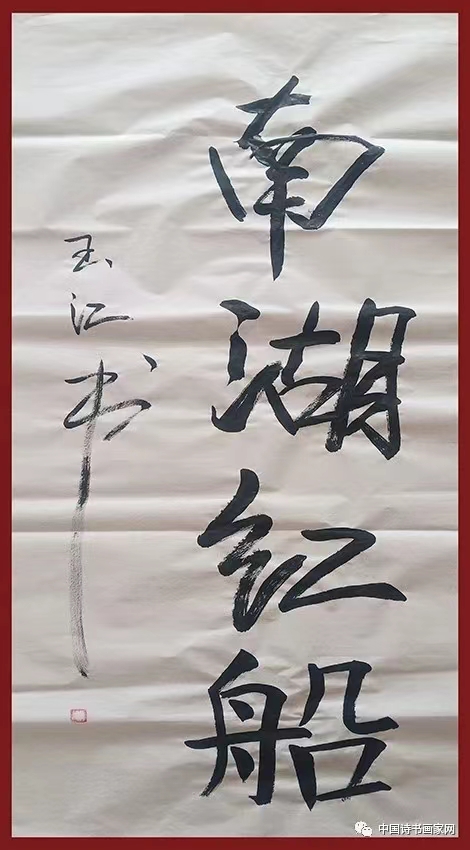 南湖红船
玉江书
中国诗书画家网